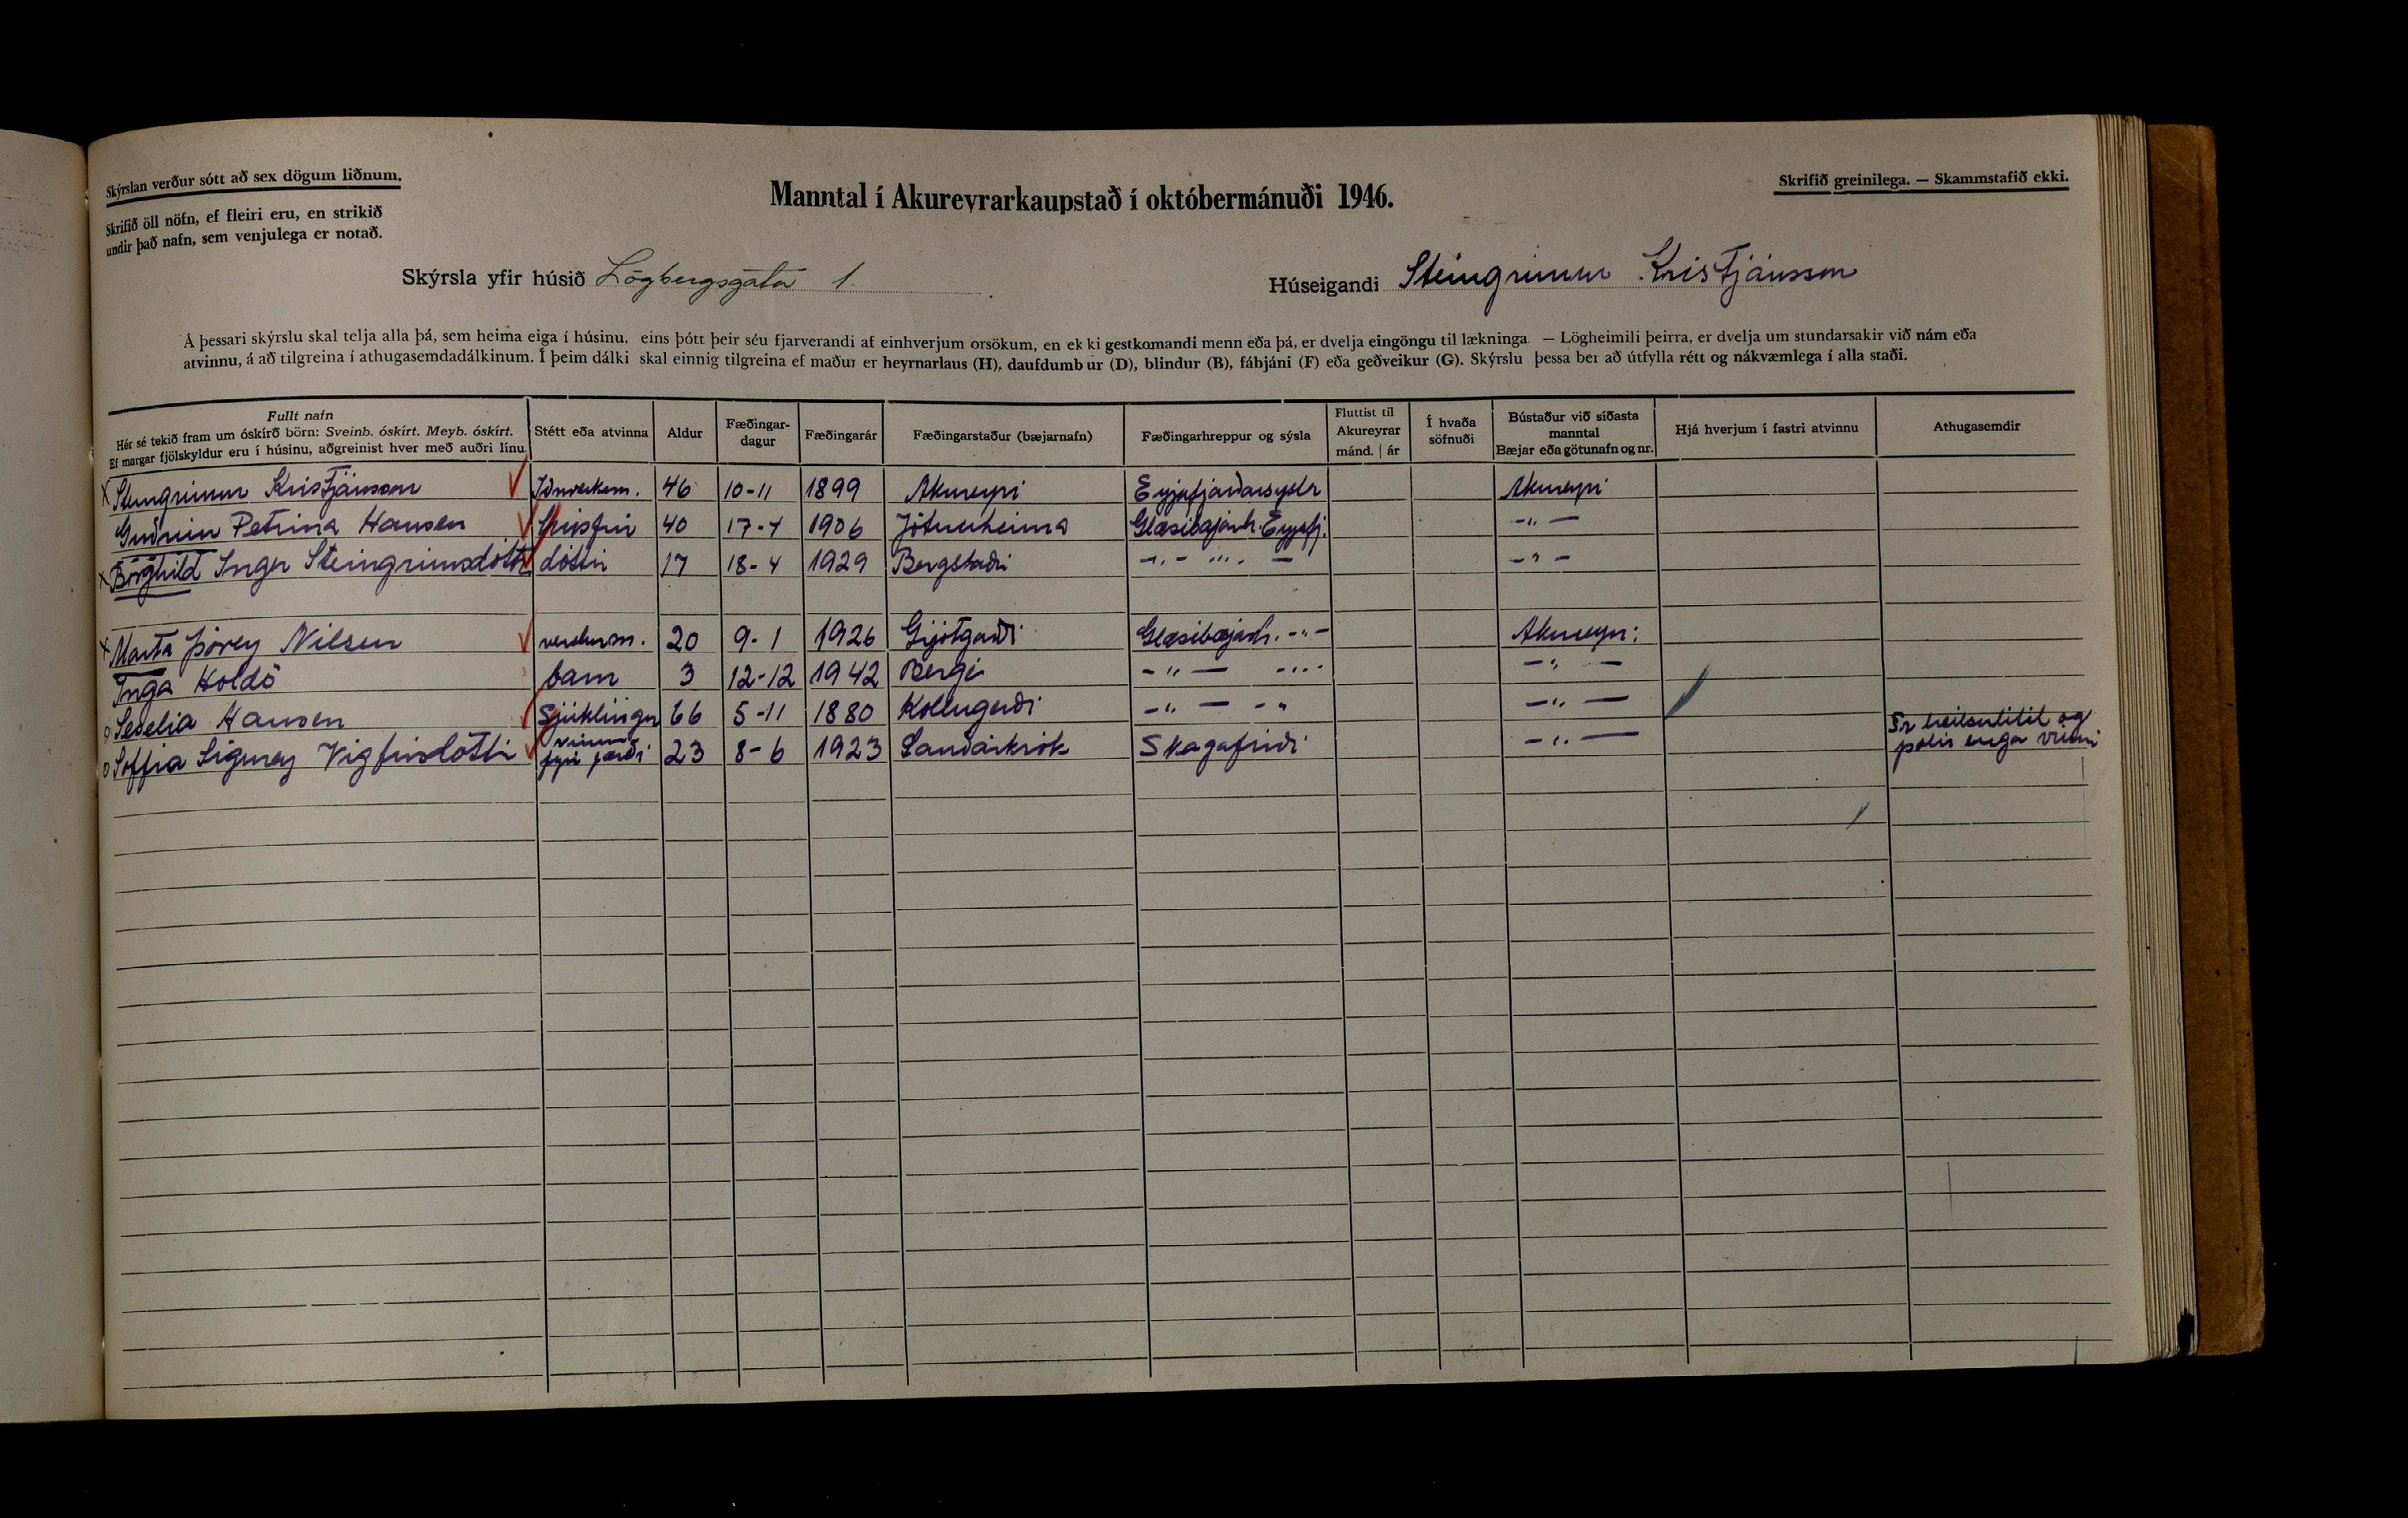 Skýrslan verður sótt að sex dögum liðnum.
Skrifið öll nöfn, ef fleiri eru, en strikið
undir það nafn, sem venjulega er notað.
Manntal í Akureyrarkaupstað í októbermánuði 1946.
Skrifið greinilega. — Skammstafið ekki.
Skýrsla yfir húsið Lögbergsgata 1.
Húseigandi Steingrímur Kristjánsson
Á þessari skýrslu skal telja alla þá, sem heima eiga í húsinu, eins þótt þeir séu fjarverandi af einhverjum orsökum, en ekki gestkomandi menn eða þá, er dvelja eingöngu til lækninga. — Lögheimili þeirra, er dvelja um stundarsakir við nám eða
atvinnu, á að tilgreina í athugasemdadálkinum. Í þeim dálki skal einnig tilgreina ef maður er heyrnarlaus (H), daufdumbur (D), blindur (B), fábjáni (F) eða geðveikur (G). Skýrslu þessa ber að útfylla rétt og nákvæmlega í alla staði.
Fullt nafn
Hér sé tekið fram um óskírð börn: Sveinb. óskírt. Meyb. óskírt.
Ef margar fjölskyldur eru í húsinu, aðgreinist hver með auðri línu.
Stétt eða atvinna
Aldur
Fæðingar-
dagur
Fæðingarár
Fæðingarstaður (bæjarnafn)
Fæðingarhreppur og sýsla
Fluttist til
Akureyrar
mánd. | ár
Í hvaða
söfnuði
Bústaður við síðasta
manntal
Bæjar eða götunafn og nr.
Hjá hverjum í fastri atvinnu
Athugasemdir
x Steingrímur Kristjánsson Iðnverkam. 46 10-11 1899 Akureyri Eyjafjarðarsýslr Akureyri
Guðrún Petrína Hansen Húsfrú 40 17-4 1906 Jötunheima Glæsibæjarh. Eyjafj. -"-
x Borghild Inger Steingrímsdóttir dóttir 17 18-4 1929 Bergstaðir -"- -"- -"-
x Marta Þórey Nilsen verkam. 20 9-1 1926 Glæsibæjarh. -"- Akureyri
Inga Holdö barn 3 12-12 1942 Bergi -"- -"- -"-
o Seselia Hansen Sjúklingur 66 5-11 1880 Kollugerði -"- -"- -"-
o Soffia Signrey Vigfúsdóttir vinnur fyrir fæði 23 8-6 1923 Sauðárkrók Skagafirði -"- Er heilsulítil og
þolir enga vinnu